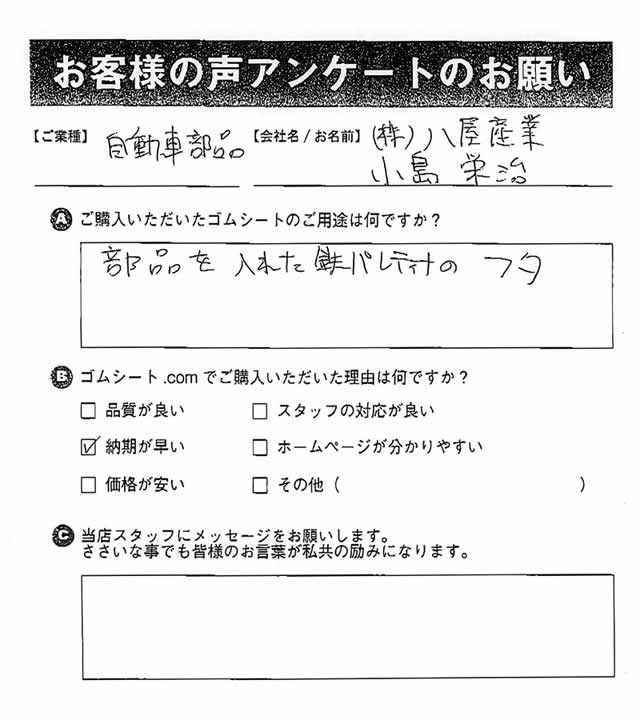 お客様の声アンケートのお願い
【ご業種】 自動車部品 【会社名/お名前】 (株)八屋産業
小島 栄治
A ご購入いただいたゴムシートのご用途は何ですか?
部品を入れた鉄パレティナのフタ
B ゴムシート.comでご購入いただいた理由は何ですか?
□ 品質が良い □ スタッフの対応が良い
☑ 納期が早い □ ホームページが分かりやすい
□ 価格が安い □ その他( )
C 当店スタッフにメッセージをお願いします。
ささいな事でも皆様のお言葉が私共の励みになります。